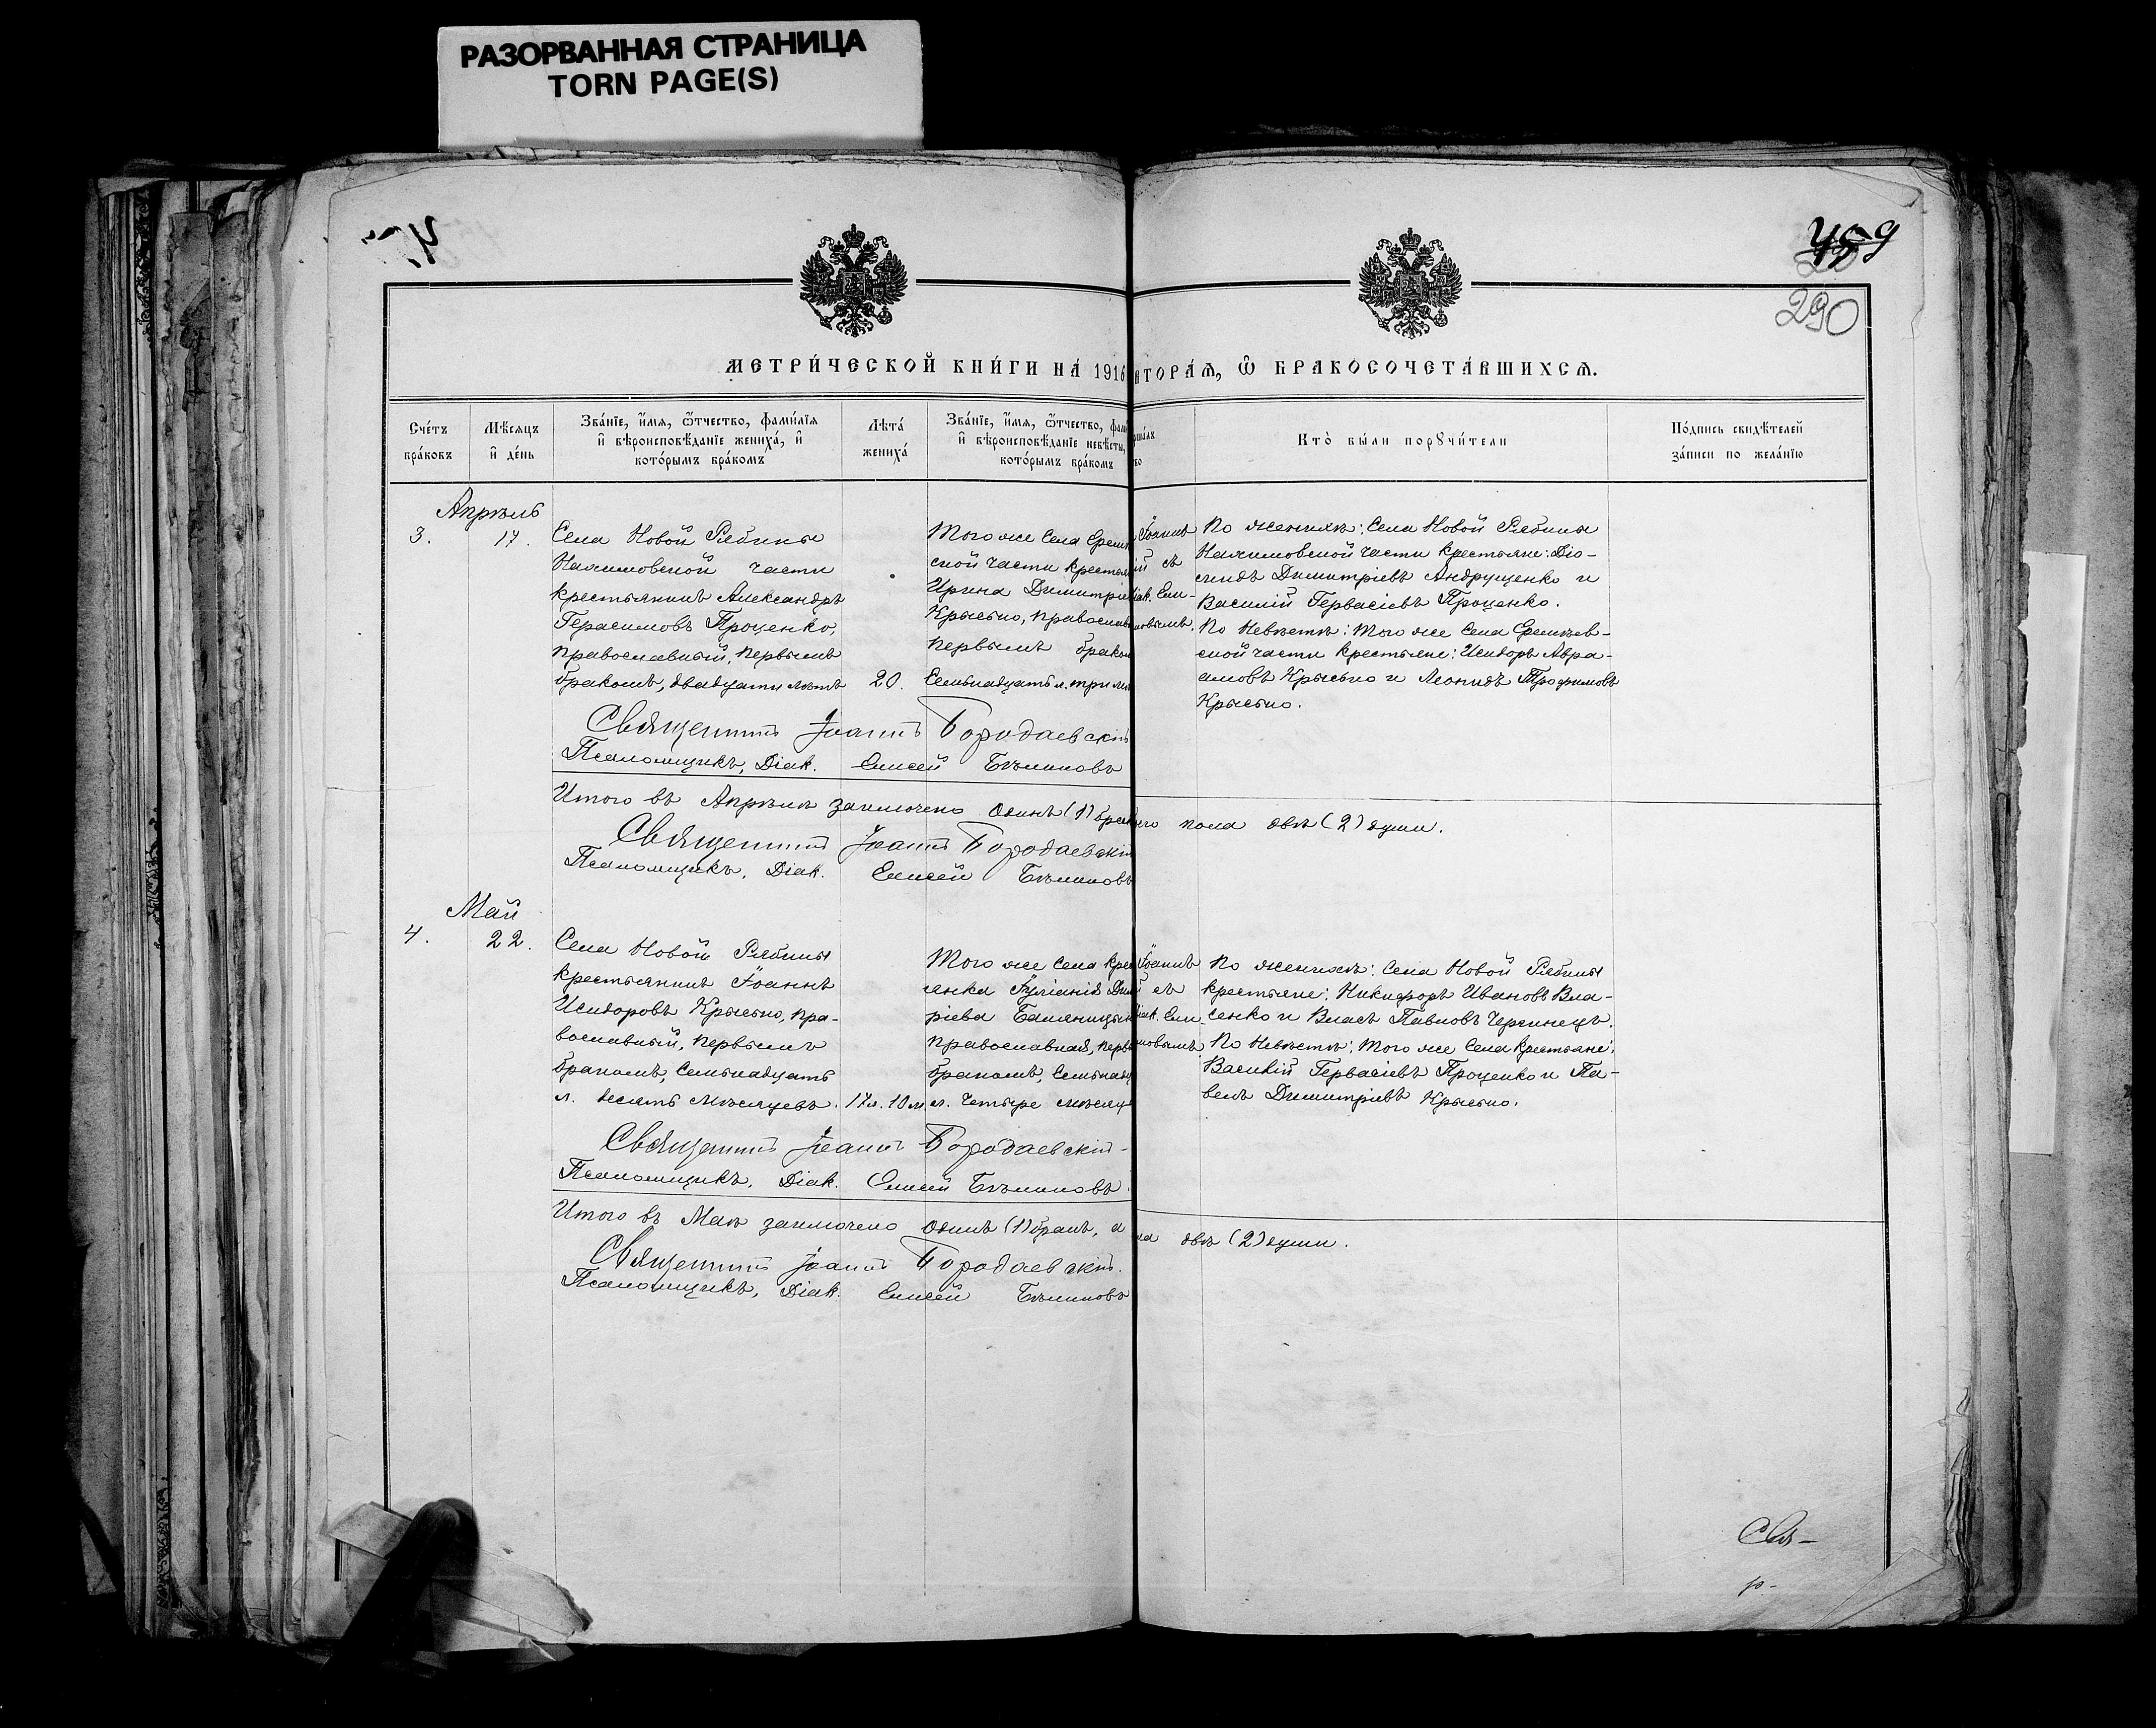 РАЗОРВАННАЯ СТРАНИЦА
TORN PAGE(S)
459
290
МЕТРИ́ЧЕСКОЙ КНИ́ГИ НА́ 1916
ВТОРА́Ѧ, Ѡ҆ БРАКОСОЧЕТА́ВШИХСѦ.
Сче́тъ
бра́ковъ
Мѣ́сяцъ
и҆ де́нь
Зва́нїе, и҆́мя, ѻ҆́тчество, фами́лїя
и҆ вѣроисповѣ́данїе жениха́, и҆
кото́рымъ бра́комъ
Лѣта̀
жениха́
Зва́нїе, и҆́мя, ѻ҆́тчество, фами
и҆ вѣроисповѣ́данїе невѣ́сты,
кото́рымъ бра́комъ
Кто̀ бы́ли порꙋчи́тели
По́дпись свидѣ́телей
за́писи по жела́нїю
Апрѣль
3. 17.
Села Новой Рябины
Налимовской части
крестьянинъ Александръ
Герасимовъ Проценко,
православный, первымъ
бракомъ, двадцати лѣтъ
20.
Того же села Еремѣ
ской части крестьян
Ирина Димитріев
Крысько, православ
первымъ браком
Семнадцать л. три мѣ
Іоаннъ
ій съ
Діак. Ели-
новымъ.
По женихѣ: Села Новой Рябины
Налимовской части крестьяне: Діо-
мидъ Димитріевъ Андрущенко и
Василій Гервасіевъ Проценко.
По невѣстѣ: того же села Еремѣев-
ской части крестьяне: Исидоръ Авра-
амовъ Крысько и Леонидъ Трофимовъ
Крысько.
Священникъ Іоаннъ Бородаевскій
Псаломщикъ, Діак. Елисей Бѣлиновъ
Итого въ Апрѣлѣ заключено одинъ (1) брак
его пола двѣ (2) души.
Священникъ Іоаннъ Бородаевскій
Псаломщикъ, Діак. Елисей Бѣлиновъ
Май
4. 22.
Села Новой Рябины
крестьянинъ Іоаннъ
Исидоровъ Крысько, пра-
вославный, первымъ
бракомъ, семнадцать
л. десять мѣсяцевъ.
17л. 10м.
Того же села крес
янка Іуліанія Дими
ріева
православная, перв
бракомъ, семнадц
л. четыре мѣсяц
Іоаннъ
й съ
Діак. Ели
новымъ
По женихѣ: Села Новой Рябины
крестьяне: Никифоръ Ивановъ Вла-
сенко и Власъ Павловъ Чернецъ.
По невѣстѣ: того же села крестьяне:
Василій Гервасіевъ Проценко и Па-
велъ Димитріевъ Крысько.
Священникъ Іоаннъ Бородаевскій
Псаломщикъ, Діак. Елисей Бѣлиновъ
Итого въ Маѣ заключено одинъ (1) бракъ, а
ла двѣ (2) души.
Священникъ Іоаннъ Бородаевскій.
Псаломщикъ, Діак. Елисей Бѣлиновъ
Свя-
р-